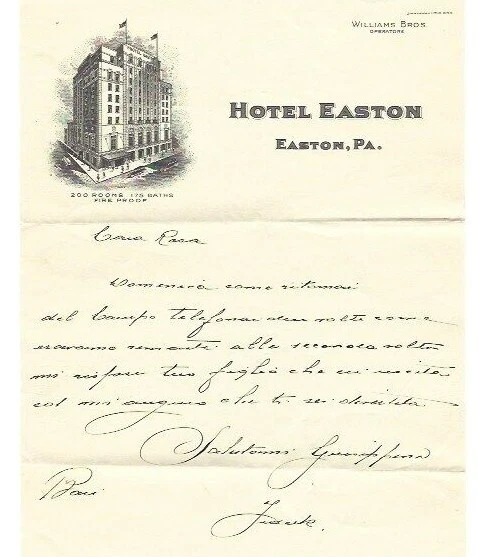 WILLIAMS BROS
OPERATORS
HOTEL EASTON
EASTON, PA.
200 ROOMS 175 BATHS
FIRE PROOF
Cara Rosa
Domenica come ritornai
del Campo telefonai due volte come
eravamo rimasti alla seconda volta
mi rispose tuo figlio che eri uscita
ed mi auguro che ti sei divertita
Salutami Giuseppina
Baci
Frank.